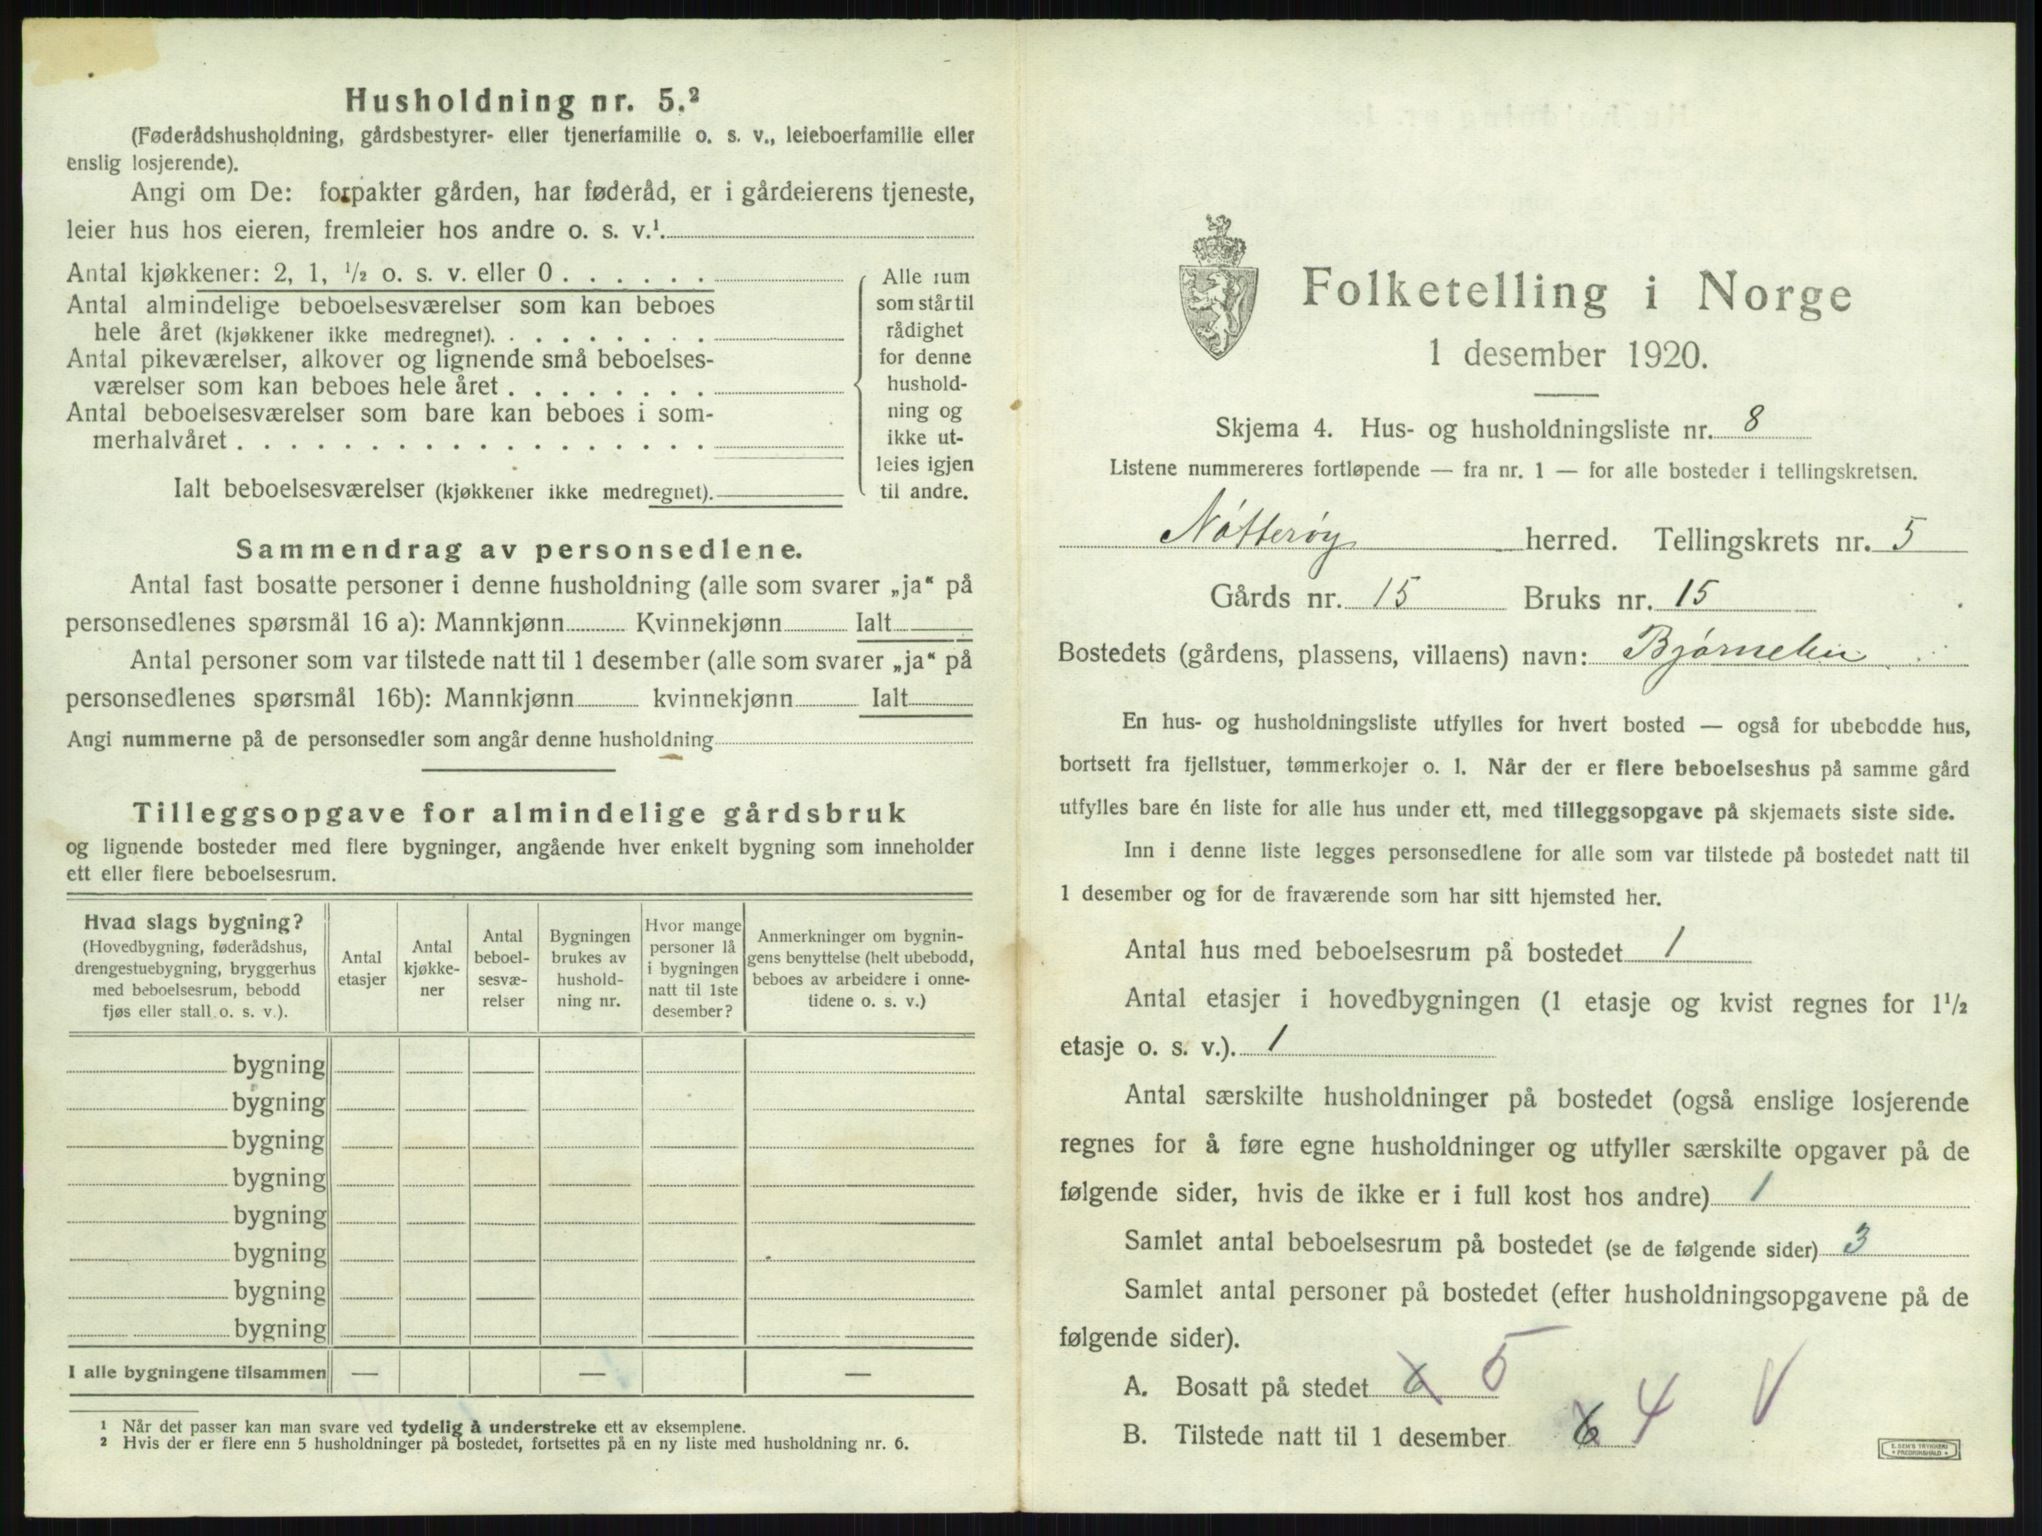 Husholdning nr. 5.²
(Føderådshusholdning, gårdsbestyrer- eller tjenerfamilie o. s. v., leieboerfamilie eller
enslig losjerende).
Angi om De: forpakter gården, har føderåd, er i gårdeierens tjeneste,
leier hus hos eieren, fremleier hos andre o. s. v.¹
Antal kjøkkener: 2, 1, ½ o. s. v. eller 0
Antal almindelige beboelsesværelser som kan beboes
hele året (kjøkkener ikke medregnet).
Antal pikeværelser, alkover og lignende små beboelses-
værelser som kan beboes hele året
Antal beboelsesværelser som bare kan beboes i som-
merhalvåret
Ialt beboelsesværelser (kjøkkener ikke medregnet).
Alle rum
som står til
rådighet
for denne
hushold-
ning og
ikke ut-
leies igjen
til andre.
Sammendrag av personsedlene.
Antal fast bosatte personer i denne husholdning (alle som svarer „ja“ på
personsedlenes spørsmål 16 a): Mannkjønn Kvinnekjønn Ialt
Antal personer som var tilstede natt til 1 desember (alle som svarer „ja“ på
personsedlenes spørsmål 16b): Mannkjønn kvinnekjønn Ialt
Angi nummerne på de personsedler som angår denne husholdning
Tilleggsopgave for almindelige gårdsbruk
og lignende bosteder med flere bygninger, angående hver enkelt bygning som inneholder
ett eller flere beboelsesrum.
Hvad slags bygning?
(Hovedbygning, føderådshus,
drengestuebygning, bryggerhus
med beboelsesrum, bebodd
fjøs eller stall o. s. v.).
Antal
etasjer
Antal
kjøkke-
ner
Antal
beboel-
sesvæ-
relser
Bygningen
brukes av
hushold-
ning nr.
Hvor mange
personer lå
i bygningen
natt til 1ste
desember?
Anmerkninger om bygnin-
gens benyttelse (helt ubebodd,
beboes av arbeidere i onne-
tidene o. s. v.)
bygning
bygning
bygning
bygning
bygning
bygning
bygning
bygning
I alle bygningene tilsammen — — —
¹ Når det passer kan man svare ved tydelig å understreke ett av eksemplene.
² Hvis der er flere enn 5 husholdninger på bostedet, fortsettes på en ny liste med husholdning nr. 6.
Folketelling i Norge
1 desember 1920.
Skjema 4. Hus- og husholdningsliste nr. 8
Listene nummereres fortløpende — fra nr. 1 — for alle bosteder i tellingskretsen.
Nøtterøy herred. Tellingskrets nr. 5
Gårds nr. 15 Bruks nr. 15
Bostedets (gårdens, plassens, villaens) navn: Bjørnebu
En hus- og husholdningsliste utfylles for hvert bosted — også for ubebodde hus,
bortsett fra fjellstuer, tømmerkojer o. l. Når der er flere beboelseshus på samme gård
utfylles bare én liste for alle hus under ett, med tilleggsopgave på skjemaets siste side.
Inn i denne liste legges personsedlene for alle som var tilstede på bostedet natt til
1 desember og for de fraværende som har sitt hjemsted her.
Antal hus med beboelsesrum på bostedet 1
Antal etasjer i hovedbygningen (1 etasje og kvist regnes for 1½
etasje o. s. v.). 1
Antal særskilte husholdninger på bostedet (også enslige losjerende
regnes for å føre egne husholdninger og utfyller særskilte opgaver på de
følgende sider, hvis de ikke er i full kost hos andre) 1
Samlet antal beboelsesrum på bostedet (se de følgende sider) 3
Samlet antal personer på bostedet (efter husholdningsopgavene på de
følgende sider).
A. Bosatt på stedet 6 5
B. Tilstede natt til 1 desember 6 4
E. SEM'S TRYKKERI
FREDRIKSHALD